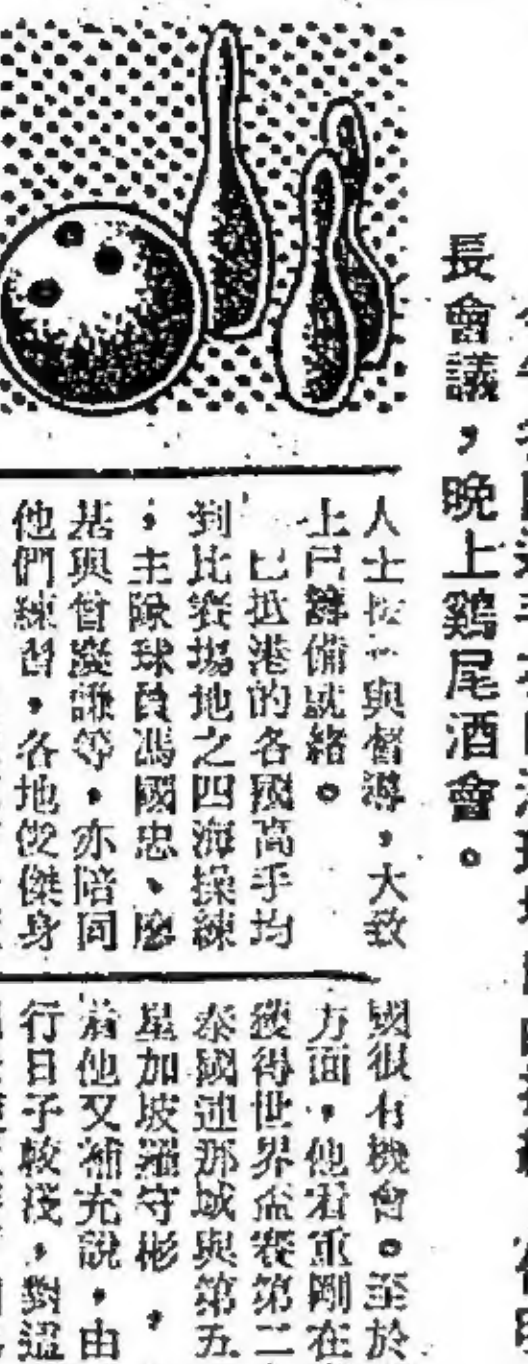 長會議，晚上鷄尾酒會。
人士 與督導，大致
上已籌備就緒。
已抵港的各國高手均
到比賽場地之四海操練
，主隊球員馮國忠、廖
基與曾慶謙等，亦陪同
他們練習，各地俊傑身
國很有機會。至於
方面，他看重剛在
獲得世界盃賽第二
泰國連那城與第五
星加坡羅守彬，
着他又補充說，由
行日子較淺，對這